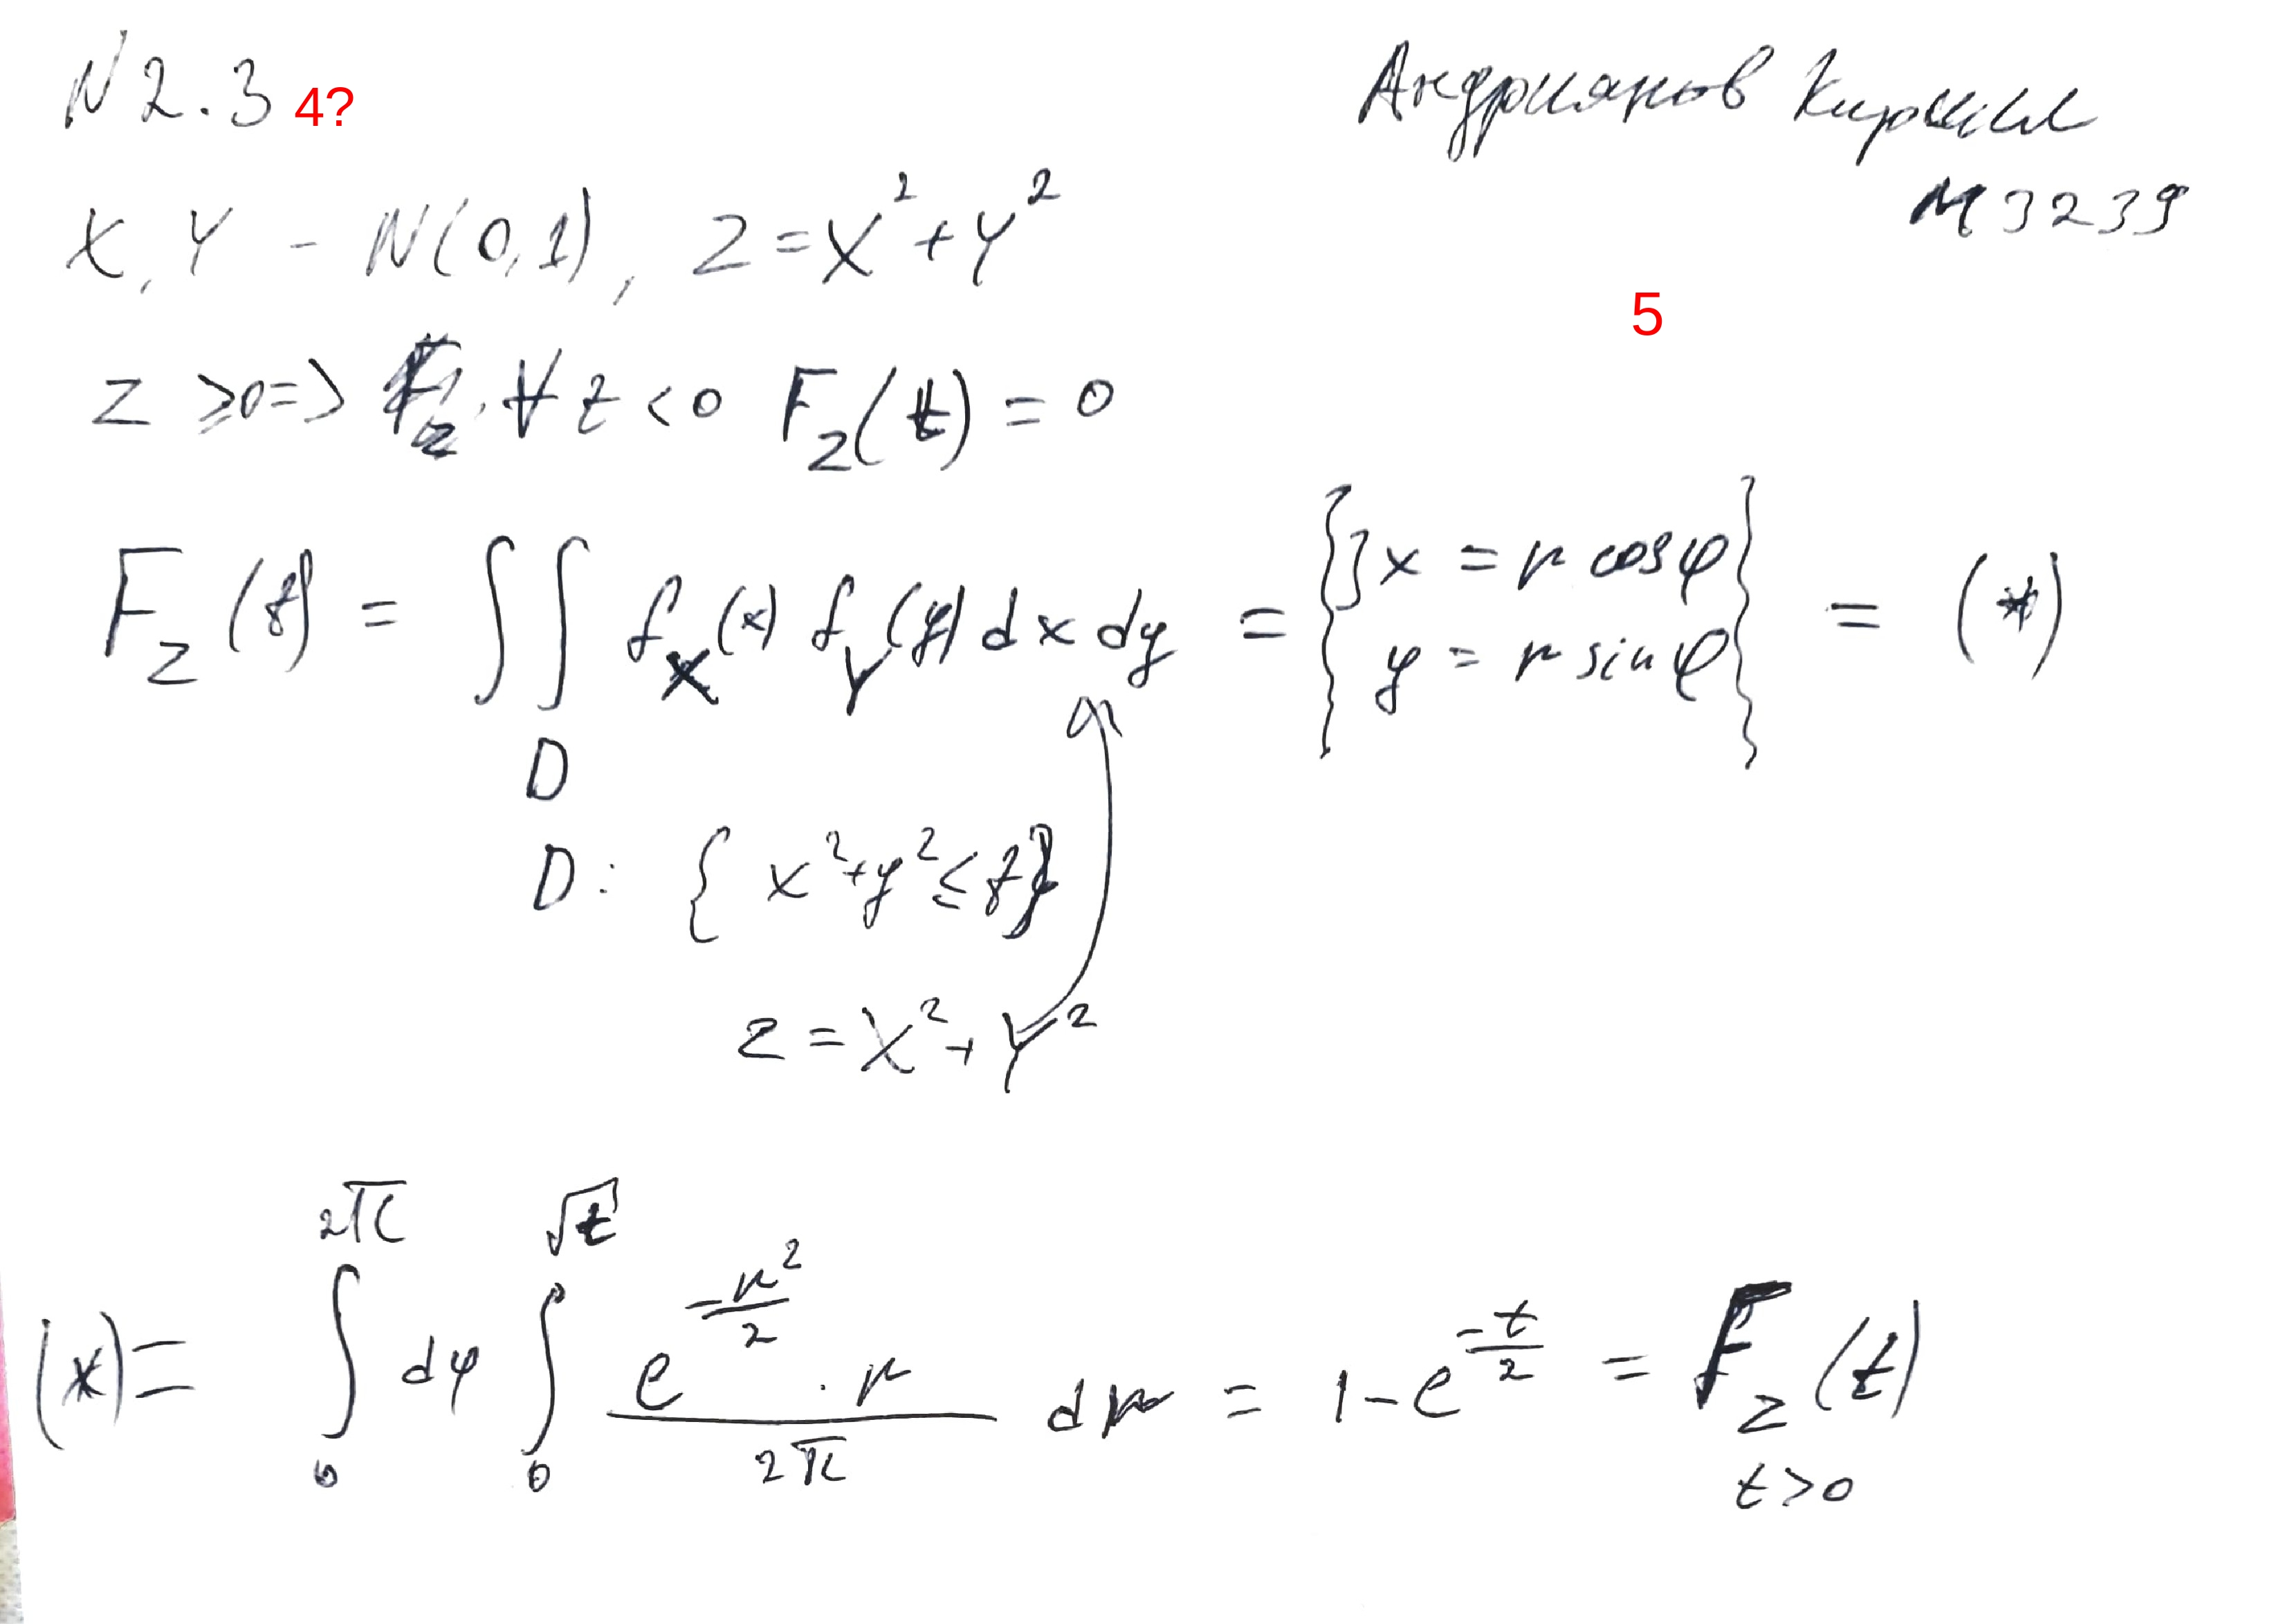 N 2.3 4? Андрианов Кирилл
M3239
X, Y - N(0,1), Z = X² + Y²
5
Z ⩾ 0 => ∀ t < 0 F_Z(t) = 0
F_Z(t) = ∬_D f_X(x) f_Y(y) dx dy = { { x = r cosφ y = r sinφ } = (*)
D: { x² + y² ≤ t }
Z = X² + Y²
(*) = ∫_0^{2π} dφ ∫_0^{√t} (e^{-r²/2} · r)/(2π) dr = 1 - e^{-t/2} = F_Z(t)
t > 0